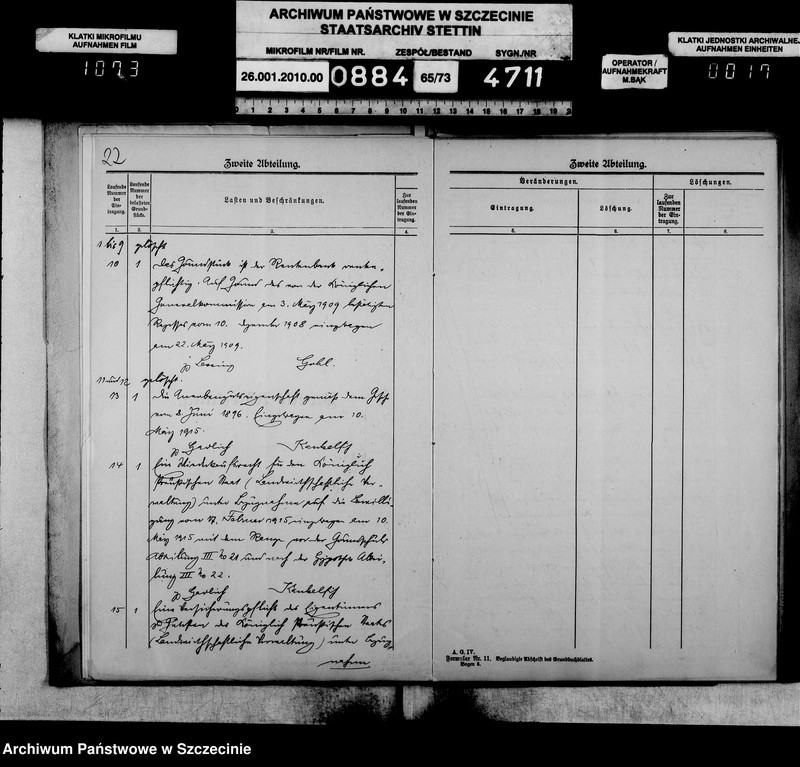 ARCHIWUM PAŃSTWOWE W SZCZECINIE
STAATSARCHIV STETTIN
KLATKI MIKROFILMU
AUFNAHMEN FILM
1073
MIKROFILM NR/FILM NR.
ZESPÓŁ/BESTAND
SYGN./NR
26.001.2010.00
0884
65/73
4711
OPERATOR /
AUFNAHMEKRAFT
M.BĄK
KLATKI JEDNOSTKI ARCHIWALNE.
AUFNAHMEN EINHEITEN
0017
0 1 2 3 4 5 6 7 8 9 10 11 12 13 14 15 16 17 18 19 2
22
Zweite Abteilung.
Laufende Nummer der Ein- tragung.
Laufende Nummer der belasteten Grund- stücke.
Lasten und Beschränkungen.
Zur laufenden Nummer der Ein- tragung.
1. 2. 3. 4.
1 bis 9 gelöscht
10 1 Das Grundstück ist der Rentenbank renten-
pflichtig. Auf Grund des von der Königlichen
Generalkommission am 3. März 1909 bestätigten
Rezesses vom 10. Dezember 1908 eingetragen
am 22. März 1909.
Gohl.
11 und 12 gelöscht.
13 1 Die Anerbengutseigenschaft gemäß dem Gesetz
vom 8. Juni 1896. Eingetragen am 10.
März 1915.
gz Gerlich
14 1 Ein Wiederkaufsrecht für den Königlich
Preußischen Staat (Landwirthschaftliche Ver-
waltung) unter Bezugnahme auf die Bewilli-
gung vom 17. Februar 1915 eingetragen am 10.
März 1915 mit dem Range vor der Grundschuld
Abtheilung III No 21 und nach der Hypothek Abtei-
lung III No 22.
gz Gerlich
15 1 Eine Versicherungspflicht des Eigentümers
zu Gunsten des Königlich Preußischen Staats
(Landwirthschaftliche Verwaltung) unter Bezug
nahme
Zweite Abteilung.
Veränderungen.
Löschungen.
Eintragung.
Löschung.
Zur laufenden Nummer der Ein- tragung.
5. 6. 7. 8.
A. G. IV.
Formular Nr. 11. Beglaubigte Abschrift des Grundbuchblattes.
Bogen 6.
Archiwum Państwowe w Szczecinie
Archiwum Państwowe w Szczecinie